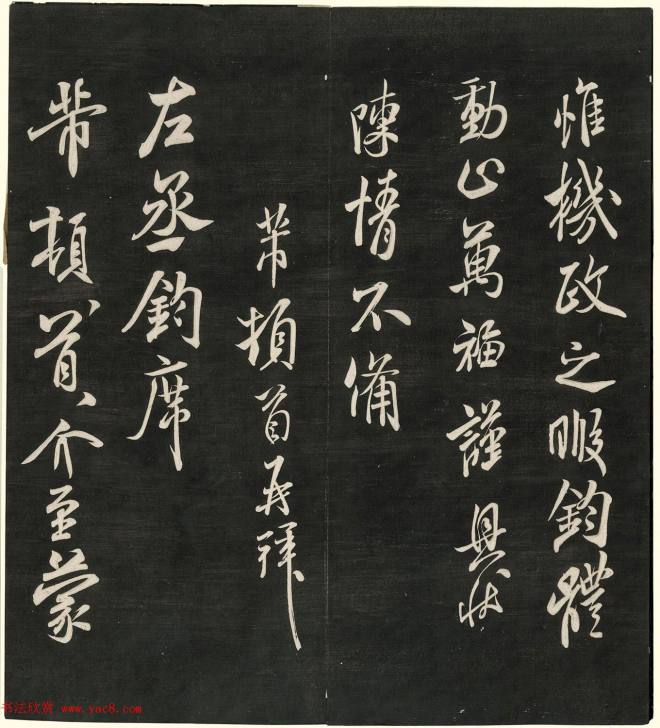 惟機政之暇鈞體
動止萬福謹具狀
陳情不備
芾頓首再拜
左丞鈞席
芾頓首介至蒙
书法欣赏 www.yac8.com